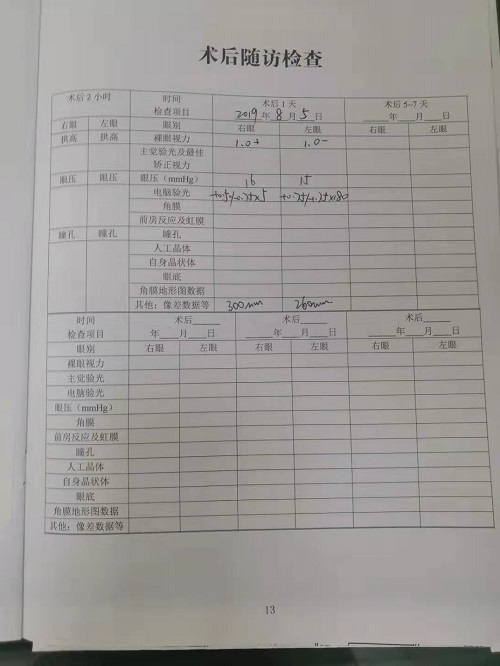 术后随访检查
术后 2 小时 时间 术后 1 天 术后 5~7 天
检查项目 2019 年 8 月 5 日 ____年____月____日
右眼 左眼 眼别 右眼 左眼 右眼 左眼
拱高 拱高 裸眼视力 1.0+ 1.0-
主觉验光及最佳
矫正视力
眼压 眼压 眼压（mmHg） 16 15
电脑验光 +0.5/-0.75×5 +0.75/-1.25×180
角膜
前房反应及虹膜
瞳孔 瞳孔 瞳孔
人工晶体
自身晶状体
眼底
角膜地形图数据
其他：像差数据等 300mm 260mm
时间 术后____ 术后____ 术后____
检查项目 年____月____日 ____年____月____日 ____年____月____日
眼别 右眼 左眼 右眼 左眼 右眼 左眼
裸眼视力
主觉验光
电脑验光
眼压（mmHg）
角膜
前房反应及虹膜
瞳孔
人工晶体
自身晶状体
眼底
角膜地形图数据
其他：像差数据等
13